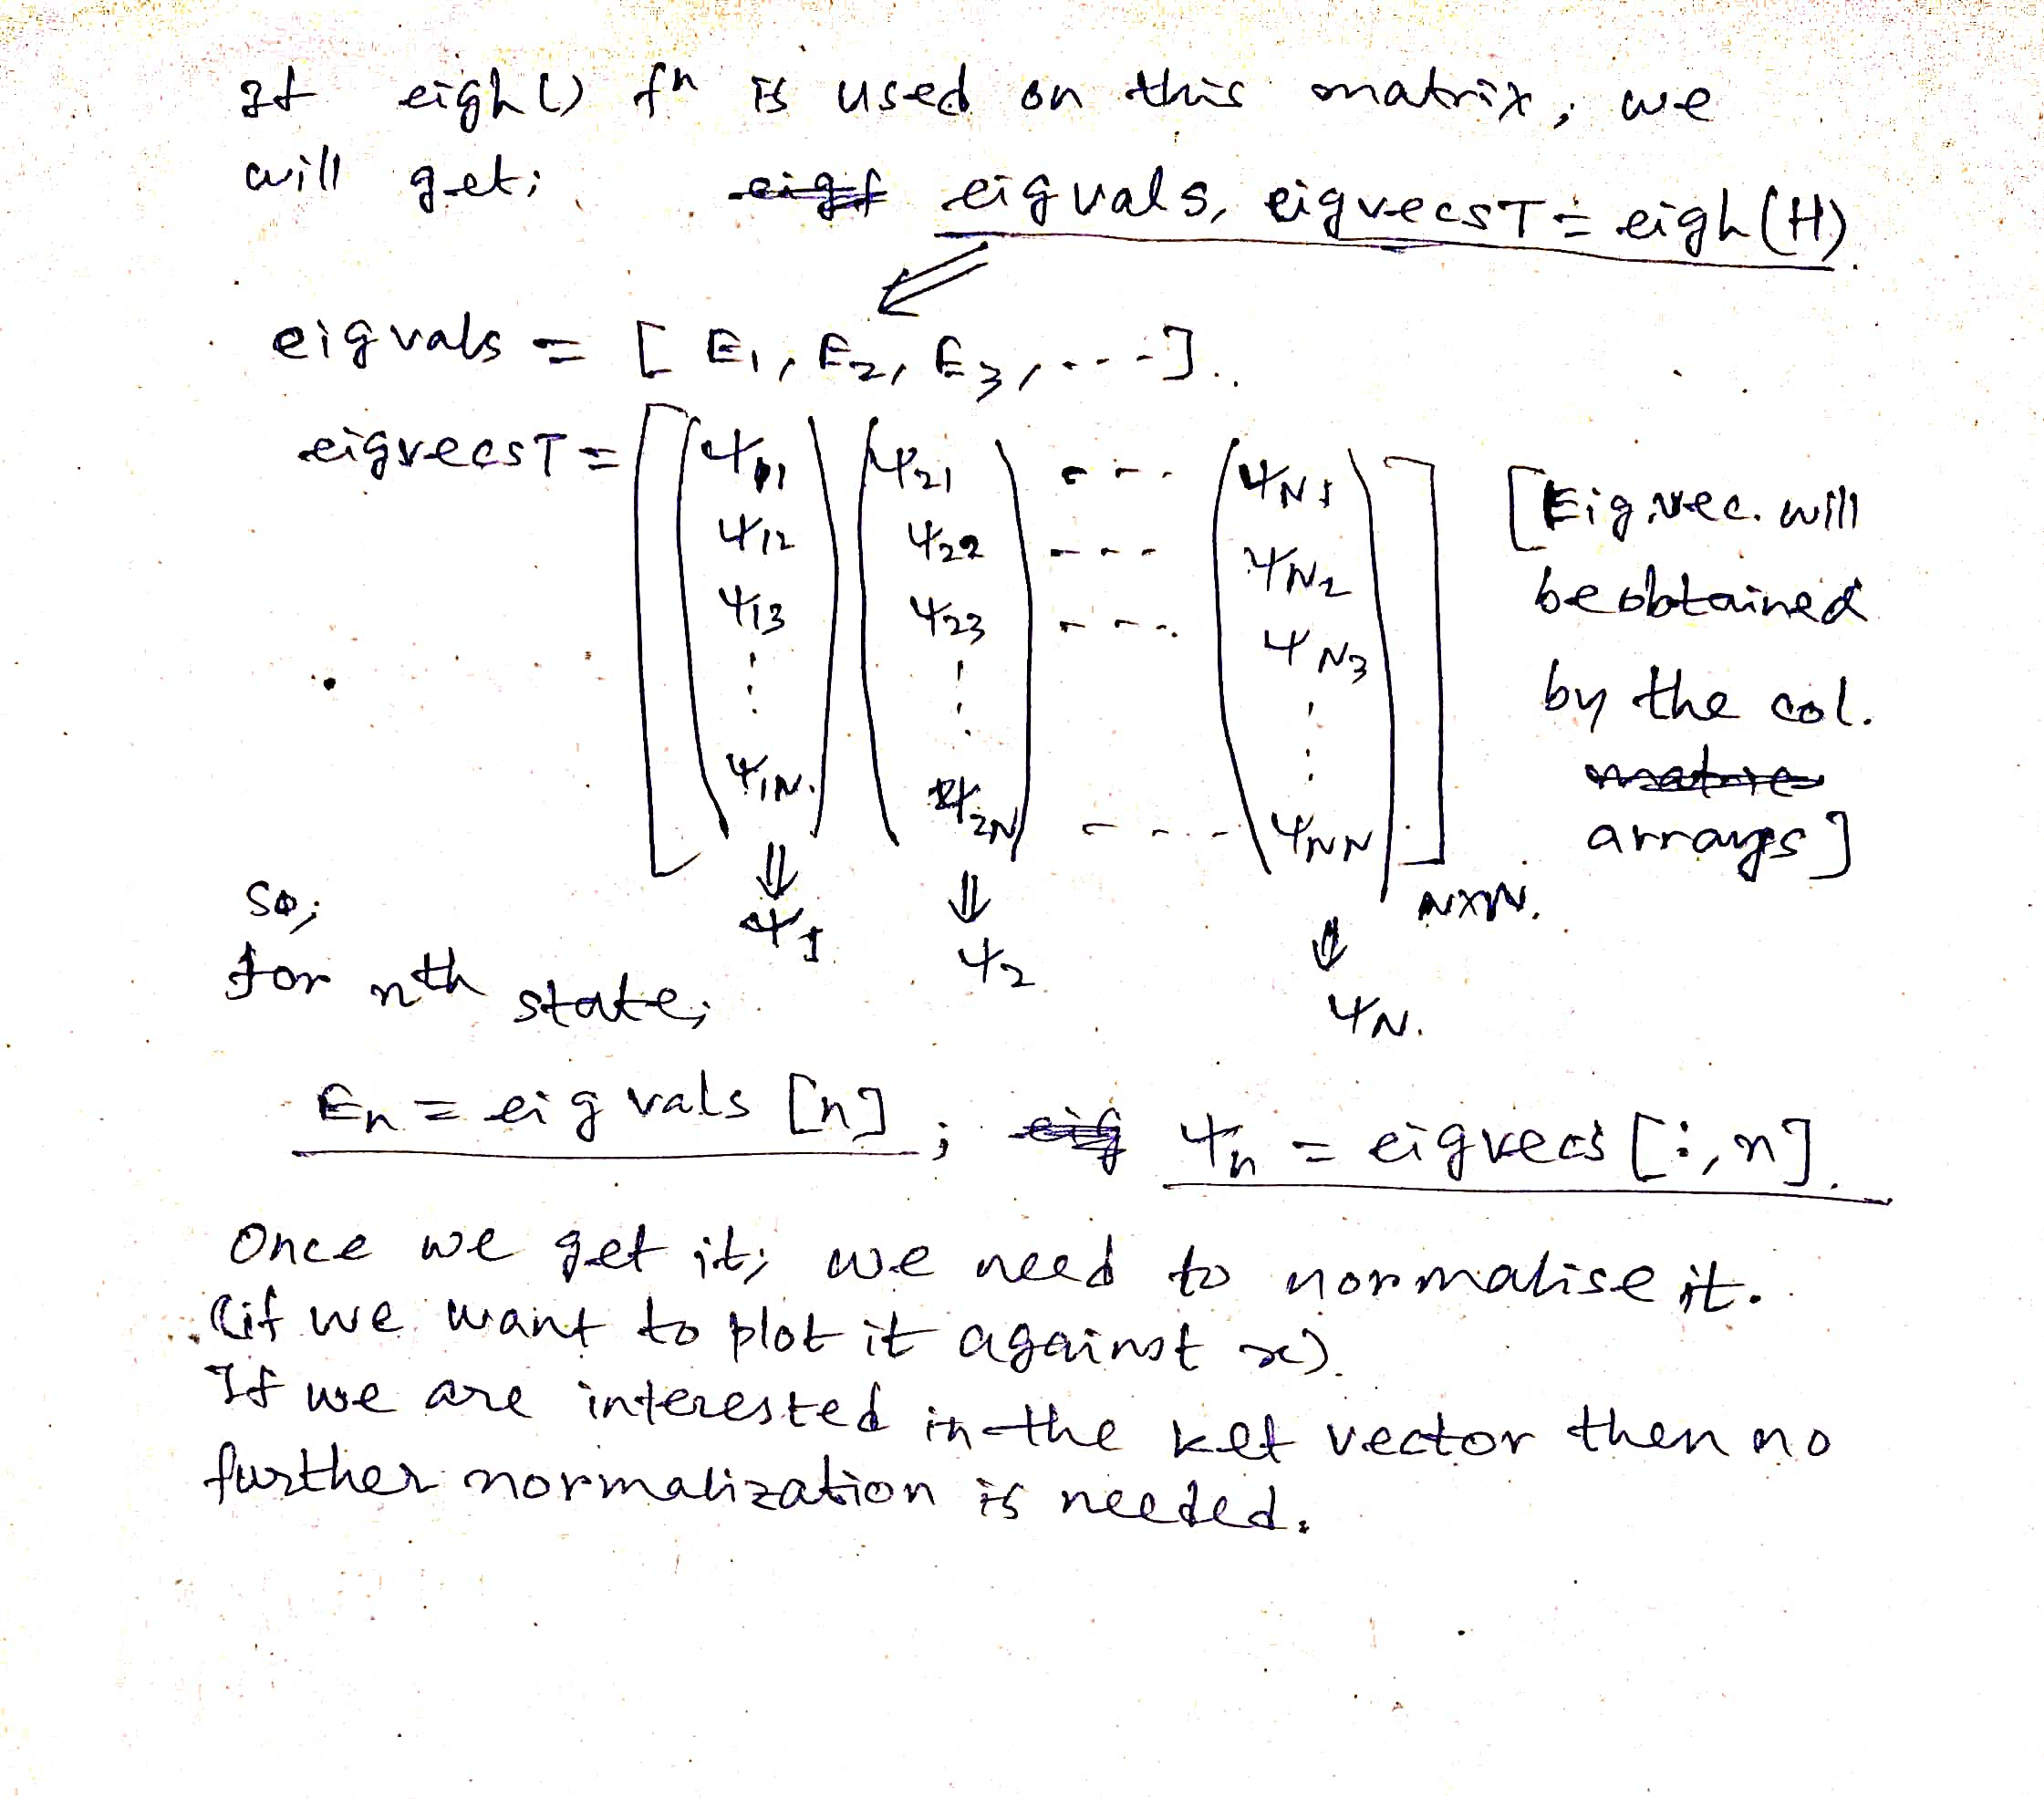 If eigh() fn is used on this matrix, we
will get; eigvals, eigvecsT = eigh(H).
eigvals = [E1, E2, E3, ----]..
eigvecsT = [(ψ11 ψ12 ψ13 ⋮ ψ1N) (ψ21 ψ22 ψ23 ⋮ ψ2N) --- (ψN1 ψN2 ψN3 ⋮ ψNN)] N×N.
[Eig.vec. will
be obtained
by the col.
arrays]
⇓ ψ1 ⇓ ψ2 ⇓ ψN.
So;
for nth state;
En = eigvals [n] ; ψn = eigvecs [:,n].
Once we get it; we need to normalise it.
(if we want to plot it against x).
If we are interested in the ket vector then no
further normalization is needed.